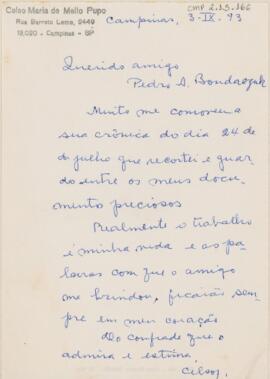 Celso Maria de Mello Pupo
Rua Barreto Leme, 2449
13,020 - Campinas - SP
CMP 2.1.5.166
Campinas, 3-IX-93
Querido amigo
Pedro S. Bondaczuk
Muito me comoveu a
sua crônica do dia 24 de
de julho que recortei e guar
do entre os meus docu
mento preciosos
Realmente o trabalho
é minha vida e as pa
lavras com que o amigo
me brindou, ficarão sem
pre em meu coração
Do confrade que o
admira e estima,
Celso,